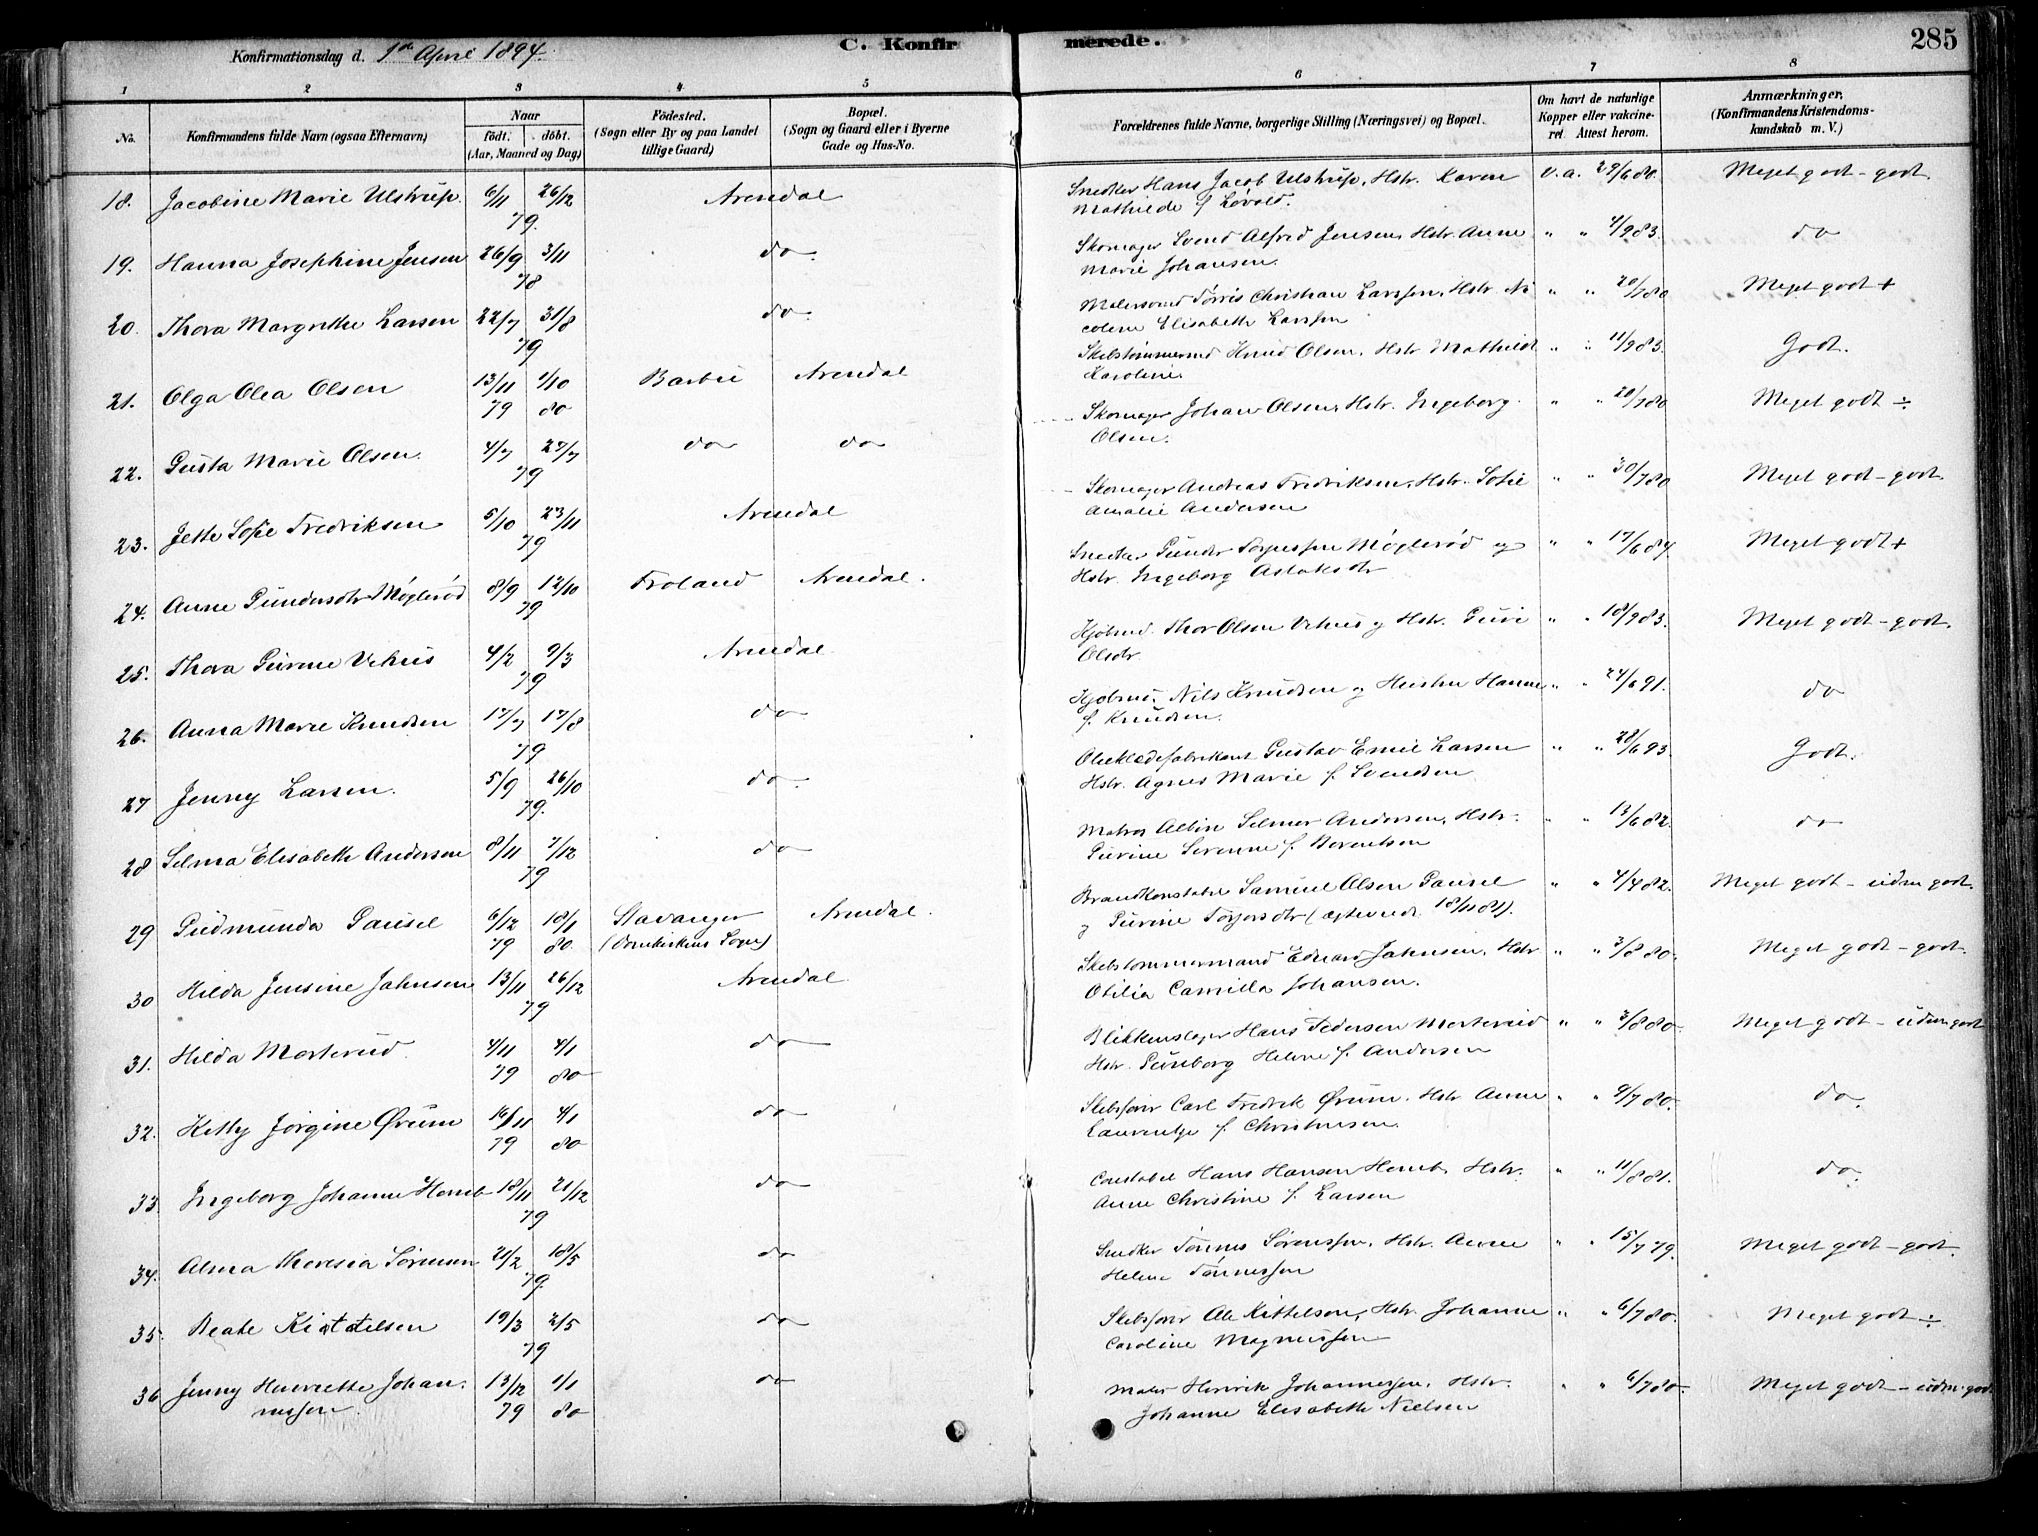 Konfirmationsdag d. 1ste April 1894. C. Konfirmerede. 285
1 2 3 4 5 6 7 8
No. Konfirmandens fulde Navn (ogsaa Efternavn) Naar födt. döbt. (Aar, Maaned og Dag) Födested. (Sogn eller By og paa Landet tillige Gaard) Bopæl. (Sogn og Gaard eller i Byerne Gade og Hus-No. Forældrenes fulde Navne, borgerlige Stilling (Næringsvei) og Bopæl. Om havt de naturlige Kopper eller vakcineret. Attest herom. Anmærkninger, (Konfirmandens Kristendomskundskab m. V.)
18. Jacobine Marie Ulstrup. 6/11 26/12 79. Arendal Snedker Hans Jacob Ulstrup, Hstr. Karen v. a. 29/6 80. Meget godt - godt.
Mathilde f. Løvold.
19. Hanna Josephine Jensen 26/9 3/11 78 do. Skomager Svend Alfred Jensen, Hstr. Anne " " 4/9 83. do
Marie Johansen.
20. Thora Margrethe Larsen 22/7 31/8 79 do. Malersvend Tørris Christian Larssen, Hstr. Ni " " 20/7 80 Meget godt +
coline Elisabeth Larssen
21. Olga Olea Olsen 13/11 79 1/10 80 Barbu Arendal Skibstømmermd Knud Olsen, Hstr. Mathilde " " 11/9 83. Godt.
Karoline.
22. Gusta Marie Olsen. 4/7 27/7 79 do do Skomager Johan Olsen, Hstr. Ingeborg " " 20/7 80 Meget godt ÷
Olsen.
23. Jette Sofie Fredriksen 5/10 23/11 79 Arendal Skomager Andreas Fredriksen, Hstr. Sofie " " 30/7 80 Meget godt - godt.
Amalie Andersen
24. Anne Gundersdtr Møglerød 8/9 12/10 79 Froland Arendal. Snedker Gunder Torjussen Møglerød og " " 17/6 84. Meget godt +
Hstr. Ingeborg Aslaksdtr
25. Thora Gurine Vehus 4/2 9/3 79 Arendal Kjøbmd. Thor Olsen Vehus og Hstr. Guri " " 18/9 83. Meget godt - godt.
Olsdtr.
26. Anna Marie Knudsen 17/7 17/8 79 do Kjøbmd. Nils Knudsen og Hustru Hanne " " 24/6 91. do
f. Knudsen.
27 Jenny Larsen. 5/9 26/10 79. do. Olieklædefabrikant Gustav Emil Larsen " " 28/6 93. Godt.
Hstr. Agnes Marie f. Svendsen
28 Selma Elisabeth Andersen 8/11 7/12 79 do Matros Albin Selmer Andersen, Hstr. " " 12/6 82. do
Gurine Serenne f. Berentsen
29 Gudmunda Gausel 6/12 79 18/1 80. Stavanger (Domkirkens Sogn) Arendal. Brandkonstabel Samuel Olsen Gausel " " 4/4 82. Meget godt - udm. godt.
og Gurine Torjersdtr (ægteviede 18/11 81).
30 Hilda Jensine Jahnsen 13/11 26/12 79 Arendal Skibstømmermand Edvard Jahnsen, Hstr " " 3/8 80. Meget godt - godt.
Otilia Camilla Johansen.
31. Hilda Morterud. 4/11 79 4/1 80 do Blikkenslager Hans Pedersen Morterud " " 3/8 80. Meget godt - udm godt
Hstr. Gunborg Helene f. Andersen
32. Kitty Jørgine Ørum 16/11 79 4/1 80 do Skibsfører Carl Fredrik Ørum. Hstr Anne " " 9/7 80. do.
Laurentze f. Christensen.
33. Ingeborg Johanne Hemb 18/11 21/12 79 do Constabel Hans Hansen Hemb, Hstr. " " 11/8 81. do.
Anne Christine f. Larsen
34. Alma Theresia Sørensen 21/2 18/5 79. do Snedker Tønnes Sørenssen, Hstr. Anne " " 15/7 79. Meget godt - godt.
Helene Tønnessen
35. Beate Kittelsen 19/3 2/5 79 do Skibsfører Ole Kittelsen, Hstr. Johanne " " 6/7 80. Meget godt ÷
Caroline Magnussen
36 Jenny Henriette Johan- 13/12 79 1/1 80 do Maler Henrik Johannessen, Hstr. " " 6/7 80. Meget godt - udm. godt
nessen. Johanne Elisabeth Nielsen